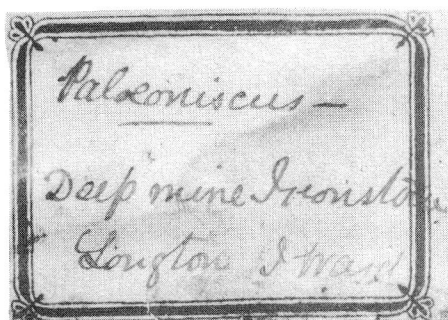 Palæoniscus —
Deep mine Ironstone
Longton J Ward